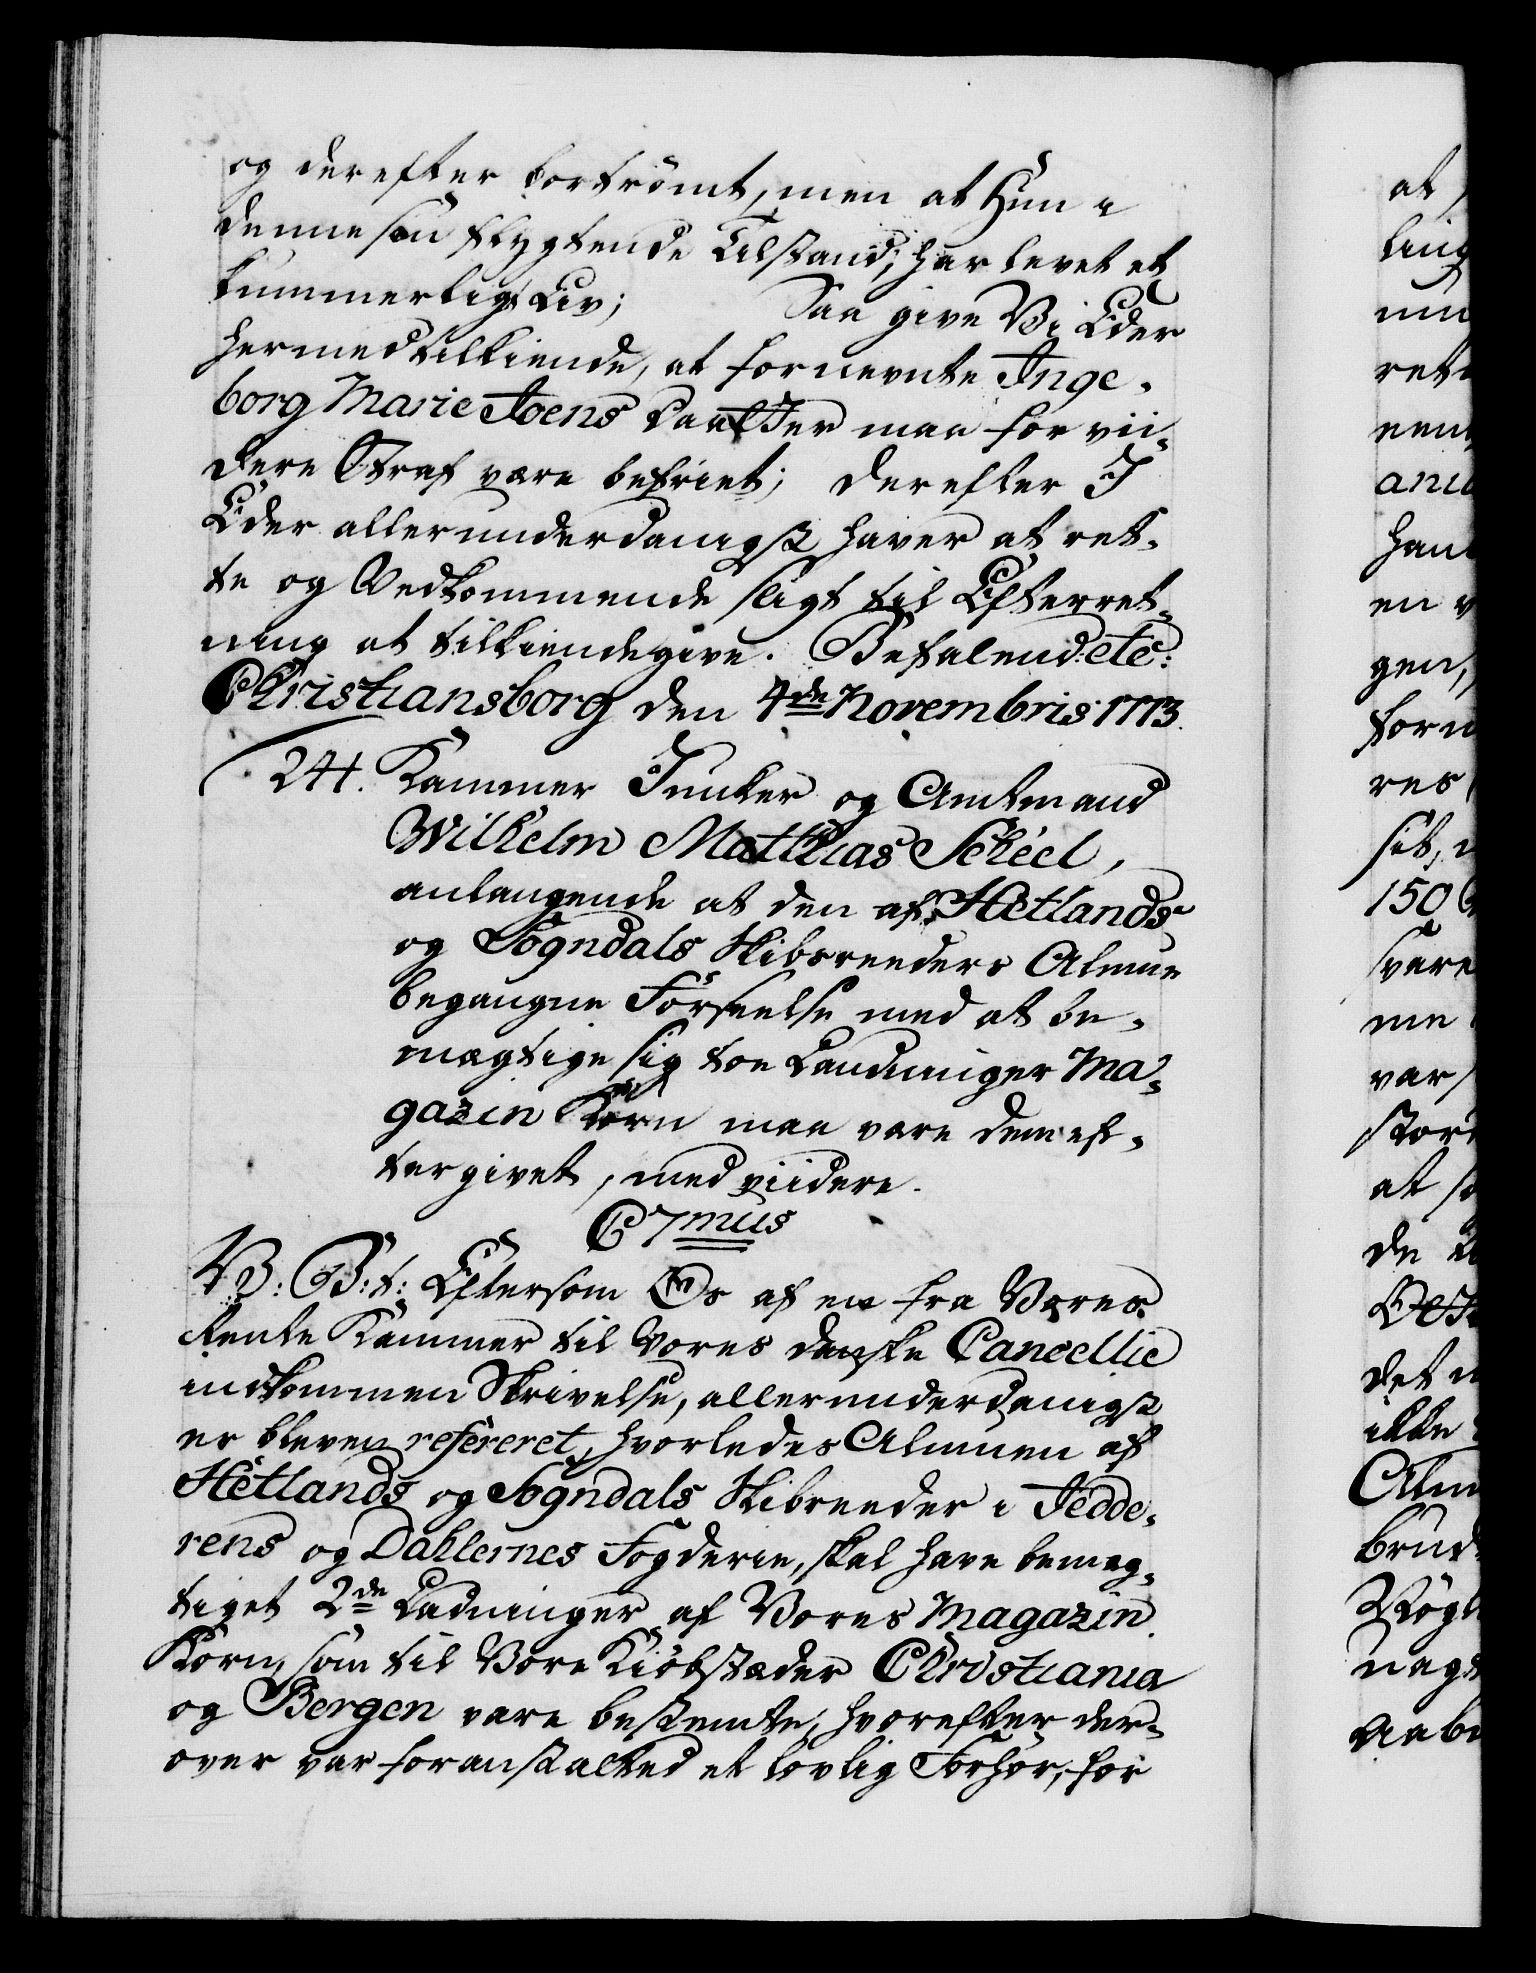 og derefter bortrömt, men at Hun i
denne sin flygtende Tilstand, har levet et
kummerligt Liv; Saa give Vi Eder
hermed tilkiende, at fornevnte Inge-
borg Marie Joens Daatter maa for vii-
dere Straf være befriet; derefter I
Eder allerunderdanigst haver at ret-
te og Vedkommende sligt til Efterret-
ning at tilkiendegive. Befalend: etc:
Christiansborg den 4de Novembris 1773.
241. Kammer Junker og Amtmand
Wilhelm Matthias Scheel,
anlangende at den af Hetlands
og Sogndals Skibreeders Almue
begangne Forseelse med at be-
mægtige sig toe Ladninger Ma-
gazin Korn maa være dem ef-
tergivet, med viidere.
C 7mus
V: G: t: Eftersom Os af en fra Vores
Rente Kammer til Vores danske Cancellie
indkommen Skrivelse, allerunderdanigst
er bleven refereret, hvorledes Almuen af
Hetlands og Sogndals Skibreeder i Jedde-
rens og Dahlernes Fogderie, skal have bemæg-
tiget 2de Ladninger af Vores Magazin
Korn, som til Vore Kiöbstæder Christiania
og Bergen vare bestemte, hvorefter der-
over var foranstalted et lovlig Forhör, for